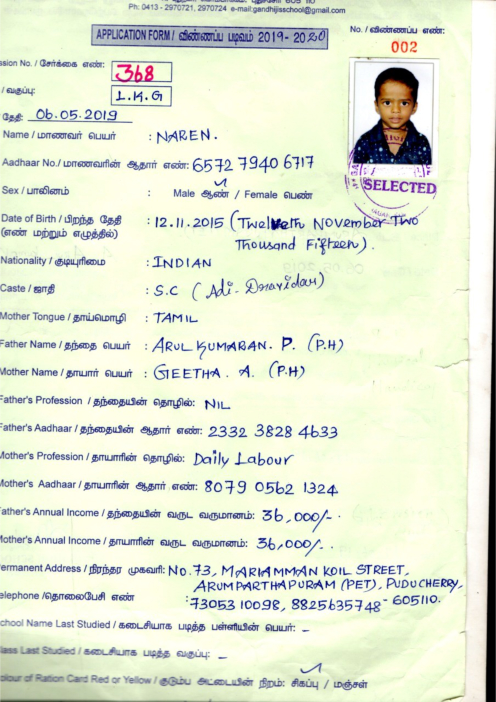 Ph: 0413 - 2970721, 2970724 e-mail:gandhijisschool@gmail.com
APPLICATION FORM / விண்ணப்ப படிவம் 2019-2020
No. / விண்ணப்ப எண்:
002
ssion No. / சேர்க்கை எண்: 368
/ வகுப்பு: L.K.G
தேதி: 06.05.2019
Name / மாணவர் பெயர் : NAREN.
Aadhaar No./ மாணவரின் ஆதார் எண்: 6572 7940 6717
SELECTED
Sex / பாலினம் : Male ஆண் / Female பெண்
Date of Birth / பிறந்த தேதி : 12.11.2015 (Twelveth November Two
(எண் மற்றும் எழுத்தில்) Thousand Fifteen).
Nationality / குடியுரிமை : INDIAN
Caste / ஜாதி : S.C (Adi-Dravidar)
Mother Tongue / தாய்மொழி : TAMIL
Father Name / தந்தை பெயர் : ARUL KUMARAN. P. (P.H)
Mother Name / தாயார் பெயர் : GEETHA. A. (P.H)
Father's Profession / தந்தையின் தொழில்: NIL
Father's Aadhaar / தந்தையின் ஆதார் எண்: 2332 3828 4633
Mother's Profession / தாயாரின் தொழில்: Daily Labour
Mother's Aadhaar / தாயாரின் ஆதார் எண்: 8079 0562 1324
Father's Annual Income / தந்தையின் வருட வருமானம்: 36,000/-.
Mother's Annual Income / தாயாரின் வருட வருமானம்: 36,000/-.
ermanent Address / நிரந்தர முகவரி: No.73, MARIAMMAN KOIL STREET,
ARUMPARTHAPURAM (PET), PUDUCHERRY,
elephone /தொலைபேசி எண் : 73053 10098, 8825635748 - 605110.
chool Name Last Studied / கடைசியாக படித்த பள்ளியின் பெயர்: –
lass Last Studied / கடைசியாக படித்த வகுப்பு: –
olour of Ration Card Red or Yellow / குடும்ப அட்டையின் நிறம்: சிகப்பு / மஞ்சள்